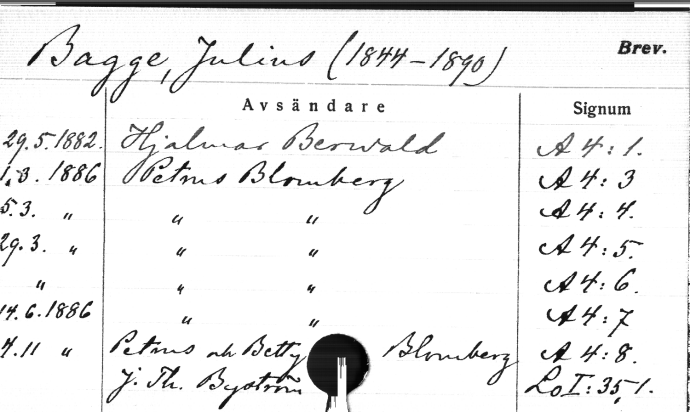 Bagge, Julius (1844-1890) Brev.
Avsändare Signum
29.5.1882. Hjalmar Berwald A 4:1.
1.3. 1886 Petrus Blomberg A 4:3
5.3. „ „ „ A 4:4.
29.3. „ „ „ A 4:5.
„ „ „ A 4:6.
14.6.1886 „ „ A 4:7
4.11 „ Petrus och Betty Blomberg A 4:8.
J. Th. Byström Lo I:35,1.